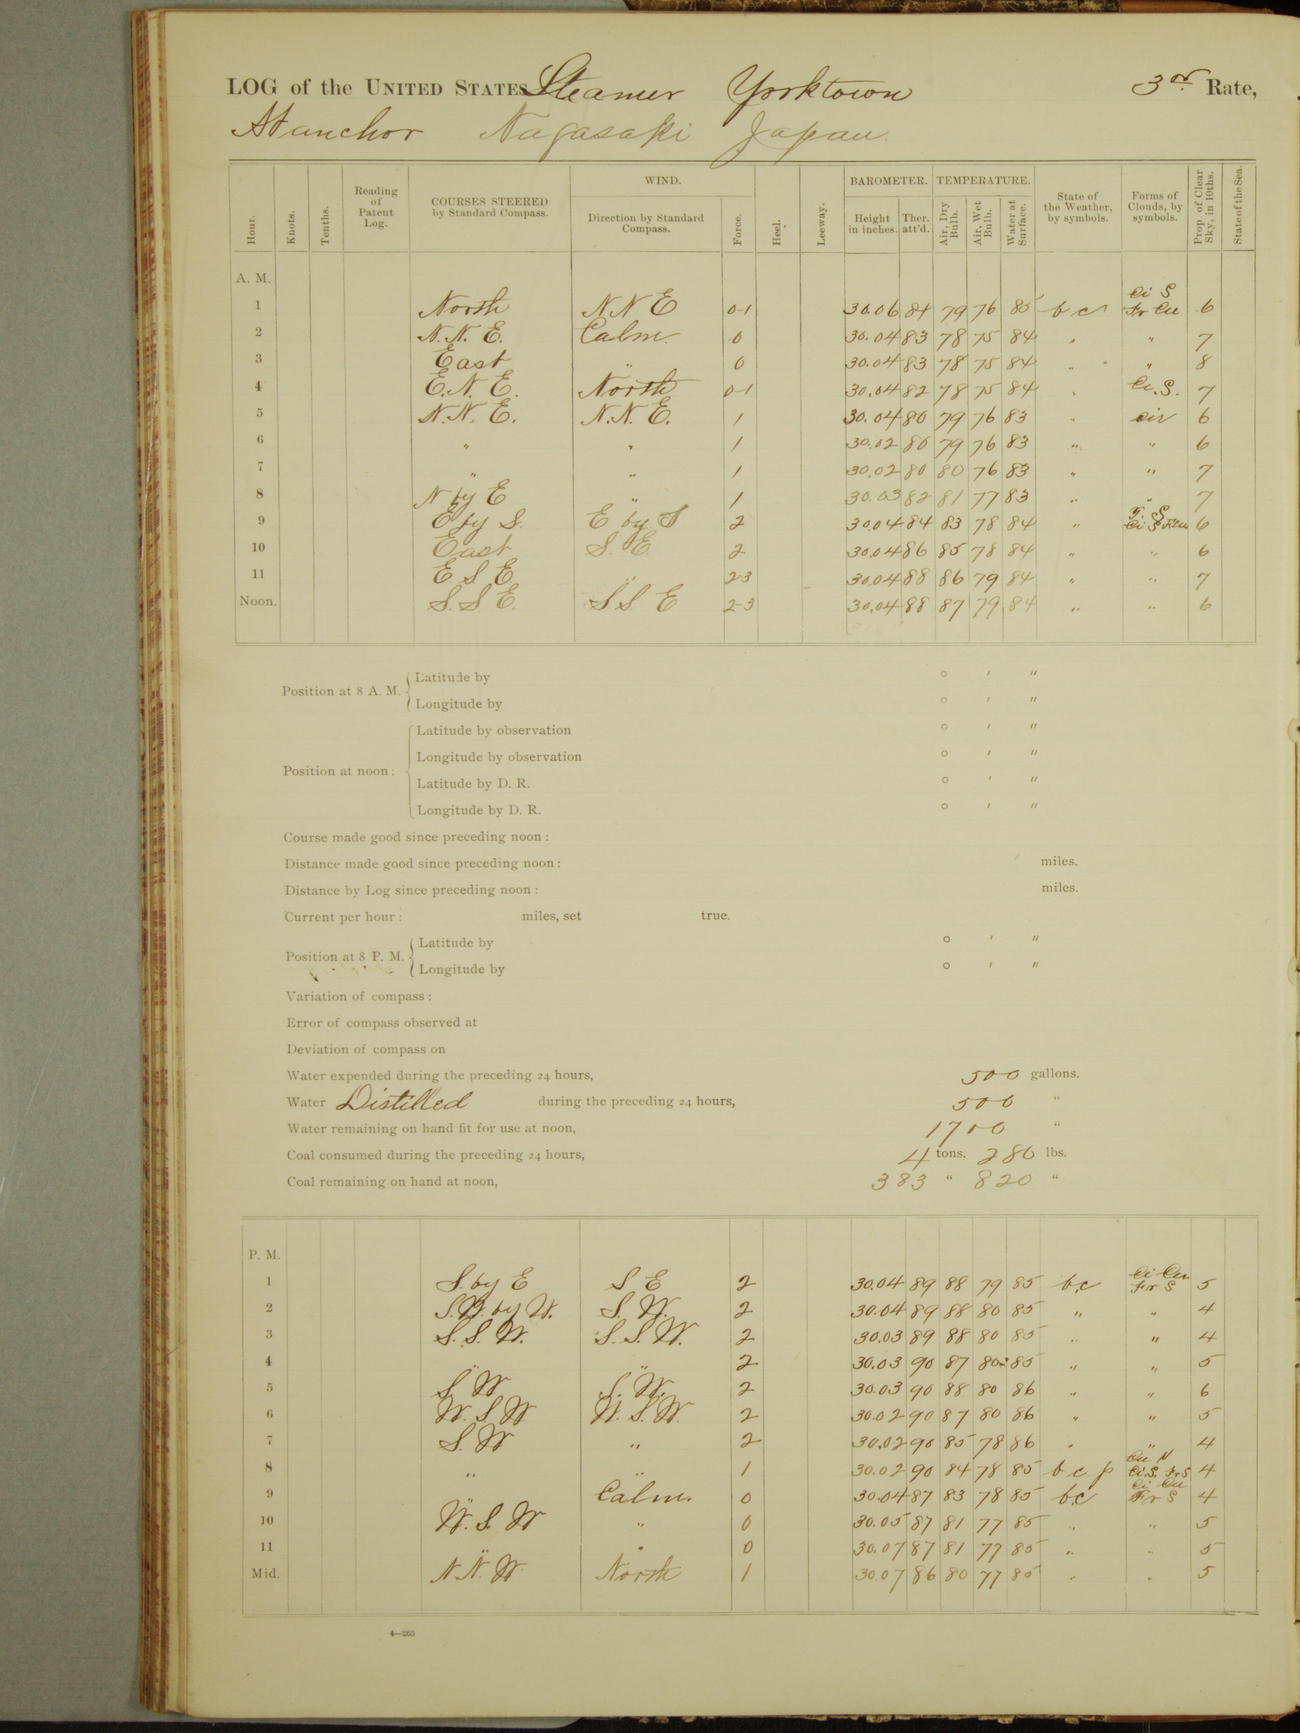 LOG of the UNITED STATES Steamer Yorktown 3rd Rate,
At anchor Nagasaki Japan.
Hour. Knots. Tenths. Reading of Patent Log. COURSES STEERED by Standard Compass. WIND. Direction by Standard Compass. Force. Heel. Leeway. BAROMETER. Height in inches. Ther. att'd. TEMPERATURE. Air, Dry Bulb. Air, Wet Bulb. Water at Surface. State of the Weather, by symbols. Forms of Clouds, by symbols. Prop. of Clear Sky, in 10ths. State of the Sea.
A. M.
1 North N N E 0-1 30.06 84 79 76 85 b c Ci S Fr Cu 6
2 N. N. E. Calm. 0 30.04 83 78 75 84 " " 7
3 East " 0 30.04 83 78 75 84 " " 8
4 E. N. E. North 0-1 30.04 82 78 75 84 " Ci. S. 7
5 N. N. E. N. N. E. 1 30.04 80 79 76 83 " cir 6
6 " " 1 30.02 80 79 76 83 " " 6
7 " " 1 30.02 80 80 76 83 " " 7
8 N by E " 1 30.03 82 81 77 83 " " 7
9 E by S. E by S 2 30.04 84 83 78 84 " 6
10 East S. E. 2 30.04 86 85 78 84 " " 6
11 E S E " 2-3 30.04 88 86 79 84 " " 7
Noon. S. S E. S S E 2-3 30.04 88 87 79 84 " " 6
Position at 8 A. M. Latitude by ° ′ ″
Longitude by ° ′ ″
Position at noon: Latitude by observation ° ′ ″
Longitude by observation ° ′ ″
Latitude by D. R. ° ′ ″
Longitude by D. R. ° ′ ″
Course made good since preceding noon:
Distance made good since preceding noon: miles.
Distance by Log since preceding noon: miles.
Current per hour: miles, set true.
Position at 8 P. M. Latitude by ° ′ ″
Longitude by ° ′ ″
Variation of compass:
Error of compass observed at
Deviation of compass on
Water expended during the preceding 24 hours, 500 gallons.
Water Distilled during the preceding 24 hours, 500 "
Water remaining on hand fit for use at noon, 1700 "
Coal consumed during the preceding 24 hours, 4 tons, 280 lbs.
Coal remaining on hand at noon, 383 " 820 "
P. M.
1 S. by E S E 2 30.04 89 88 79 85 b.c Ci Cu Fr S 5
2 S.W. by W. S. W. 2 30.04 89 88 80 85 " " 4
3 S. S. W. S. S. W. 2 30.03 89 88 80 85 " " 4
4 " " 2 30.03 90 87 80 85 " " 5
5 S W S. W. 2 30.03 90 88 80 86 " " 6
6 W. S W W. S. W. 2 30.02 90 87 80 86 " " 5
7 S. W " 2 30.02 90 85 78 86 " " 4
8 " " 1 30.02 90 84 78 85 b c p Cu N Ci.S. Fr S 4
9 " Calm. 0 30.04 87 83 78 85 b.c Ci Cu Fr S 4
10 W. S. W " 0 30.05 87 81 77 85 " " 5
11 " " 0 30.07 87 81 77 85 " " 5
Mid. N. N. W. North 1 30.07 86 80 77 85 " " 5
4—265